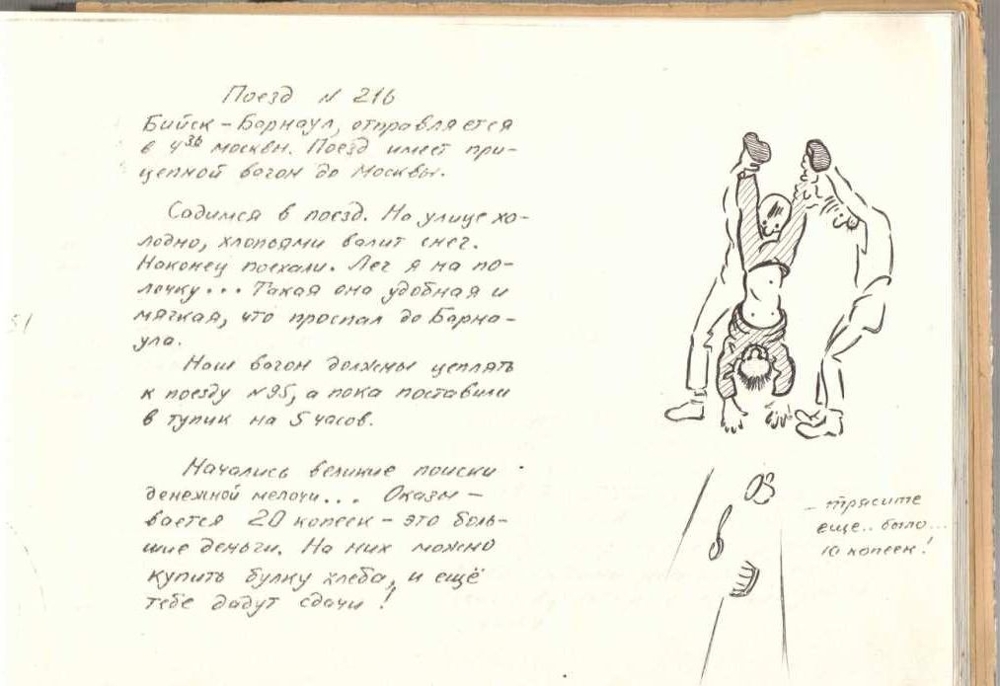 Поезд N 216
Бийск – Барнаул, отправляется
в 4³⁶ москвн. Поезд имеет при-
цепной вагон до Москвы.
Садимся в поезд. На улице хо-
лодно, хлопьями валит снег.
Наконец поехали. Лег я на по-
лочку... Такая она удобная и
мягкая, что проспал до Барна-
ула.
Наш вагон должны цеплять
к поезду N95, а пока поставили
в тупик на 5 часов.
Начались великие поиски
денежной мелочи... Оказы-
вается 20 копеек – это боль-
шие деньги. На них можно
купить булку хлеба, и ещё
тебе дадут сдачи!
– трясите
еще.. было...
10 копеек!